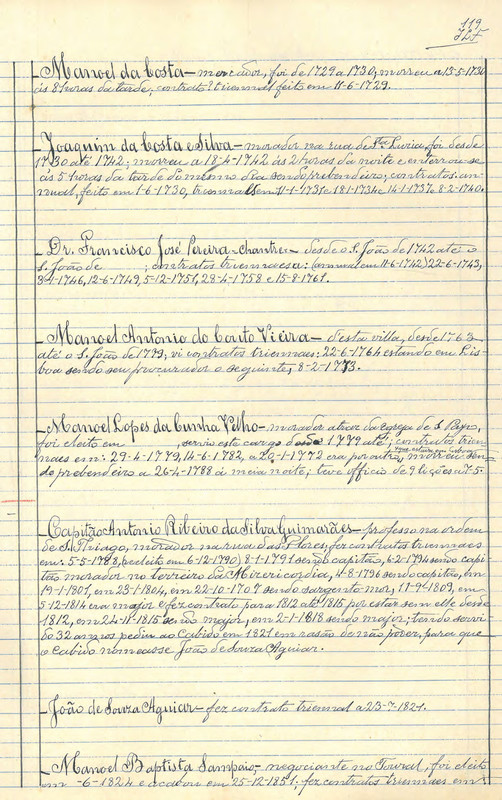 119
Manoel da Costa — mercador, foi de 1729 a 1730; morreu a 13-5-1730
ás 8 horas da tarde, contrato triennal feito em 11-6-1729.
Joaquim da Costa e Silva — morador na rua de Sta Luzia, foi desde
1730 até 1742; morreu a 18-4-1742 ás 2 horas da noite e enterrou-se
ás 5 horas da tarde do mesmo dia sendo prebendeiro; contratos: an-
nual, feito em 1-6-1730, triennaes em 11-1-1731 e 18-1-1734 e 14-1-1737 e 8-2-1740.
Dr. Francisco José Pereira — chantre — desde o S. João de 1742 até o
S. João de ; contratos triennaes a: (annual em 11-6-1742) 22-6-1743,
3-1-1746, 12-6-1749, 5-12-1751, 28-4-1758 e 15-8-1761.
Manoel Antonio do Couto Vieira — d'esta villa, desde 1763
até o S. João de 1779; vi contratos triennaes: 22-6-1764 estando em Lis-
boa sendo seu procurador o seguinte, 8-2-1773.
Manoel Lopes da Cunha Velho — morador atraz da egreja de S. Payo,
foi eleito em , serviu este cargo desde 1779 até ; contratos trien-
naes em: 29-4-1779, 14-6-1782, a 20-1-1772 era por outro, morreu sen-
do prebendeiro a 26-4-1788 á meia noite; teve officio de 9 lições a 7-5.
Capitão Antonio Ribeiro da Silva Guimarães — professo na ordem
de S. Thiago, morador na rua das Flores, fez contratos triennaes
em: 5-5-1788, (reeleito em 6-12-1790) 8-1-1791 sendo capitão, 6-2-1794 sendo capi-
tão morador no terreiro da Misericordia, 4-8-1796 sendo capitão, em
19-1-1801, em 28-1-1804, em 22-10-1707 sendo sargento mor, 17-9-1809, em
5-12-1814 era major e fez contrato para 1812 até 1815 por estar sem elle desde
1812, em 24-11-1815 sendo major, em 2-1-1818 sendo major; tendo servi-
do 32 annos pediu ao Cabido em 1821 em rasão de não poder, para que
o Cabido nomeasse João de Souza Aguiar.
João de Souza Aguiar — fez contrato triennal a 23-7-1821.
Manoel Baptista Sampaio, — negociante no Toural, foi eleito
em -6-1824 e acabou em 25-12-1851; fez contratos triennaes em: